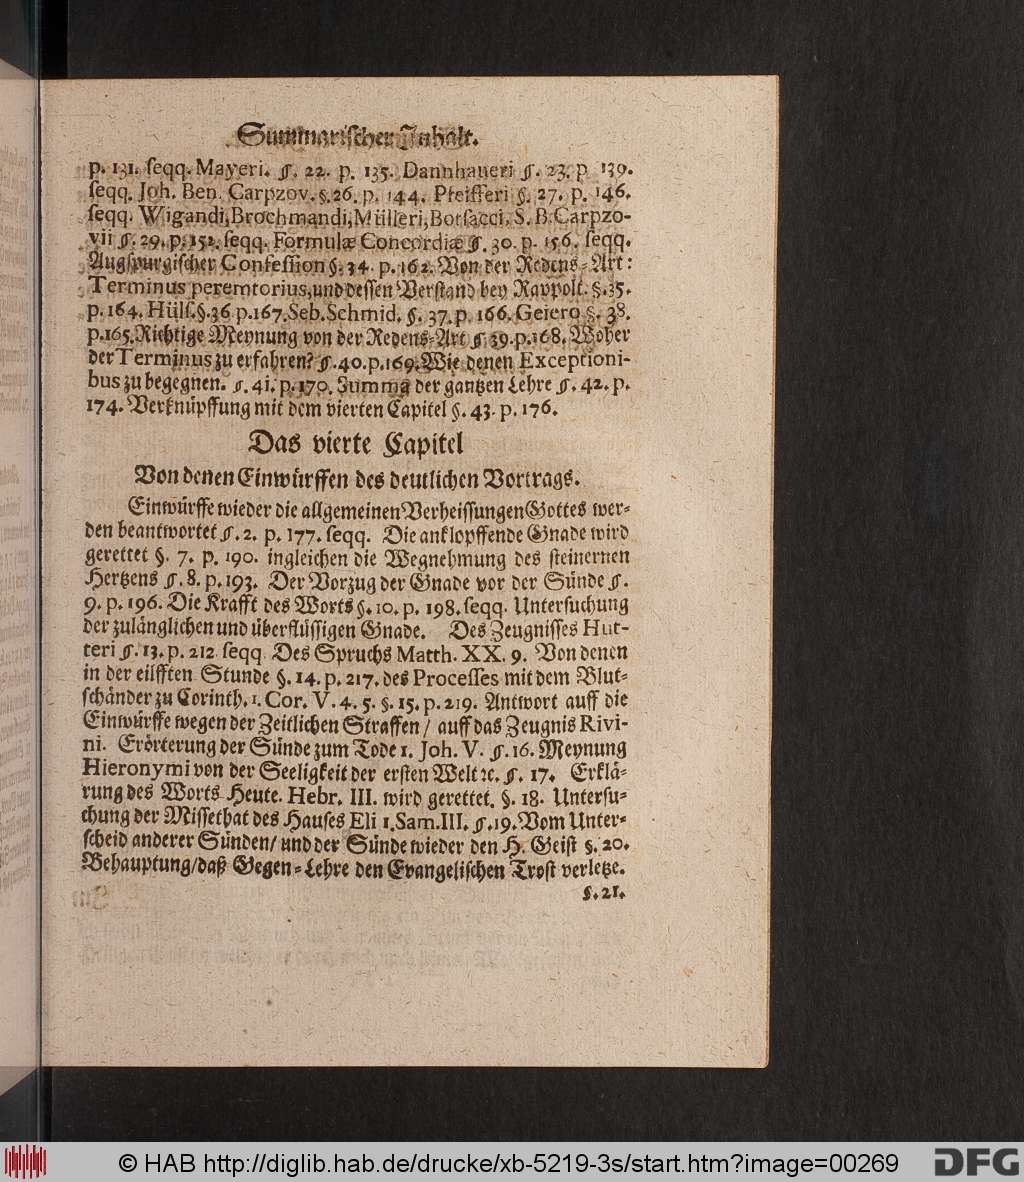 Summarischer Inhalt.
p. 131. seqq. Mayeri. §. 22. p. 135. Dannhaueri §. 23. p 139.
seqq. Joh. Ben. Carpzov. §. 26. p. 144. Pfeifferi §. 27. p. 146.
seqq. Wigandi, Brochmandi, Mülleri, Botsacci, S. B. Carpzo-
vii §. 29. p. 152. seqq. Formulæ Concordiæ §. 30. p. 156. seqq.
Augspurgischer Confession §. 34. p. 162. Von der Redens-Art:
Terminus peremtorius, und dessen Verstand bey Rappolt. §. 35.
p. 164. Hüls. §. 36 p. 167. Seb. Schmid. §. 37. p. 166. Geiero §. 38.
p. 165. Richtige Meynung von der Redens-Art §. 39. p. 168. Woher
der Terminus zu erfahren? §. 40. p. 169. Wie denen Exceptioni-
bus zu begegnen. §. 41. p. 170. Summa der gantzen Lehre §. 42. p.
174. Verknüpffung mit dem vierten Capitel §. 43. p. 176.
Das vierte Capitel
Von denen Einwürffen des deutlichen Vortrags.
Einwürffe wieder die allgemeinen Verheissungen Gottes wer-
den beantwortet §. 2. p. 177. seqq. Die anklopffende Gnade wird
gerettet §. 7. p. 190. ingleichen die Wegnehmung des steinernen
Hertzens §. 8. p. 193. Der Vorzug der Gnade vor der Sünde §.
9. p. 196. Die Krafft des Worts §. 10. p. 198. seqq. Untersuchung
der zulänglichen und überflüssigen Gnade. Des Zeugnisses Hut-
teri §. 13. p. 212 seqq Des Spruchs Matth. XX. 9. Von denen
in der eilfften Stunde §. 14. p. 217. des Processes mit dem Blut-
schänder zu Corinth. 1. Cor. V. 4. 5. §. 15. p. 219. Antwort auff die
Einwürffe wegen der Zeitlichen Straffen / auff das Zeugnis Rivi-
ni. Erörterung der Sünde zum Tode 1. Joh. V. §. 16. Meynung
Hieronymi von der Seeligkeit der ersten Welt ꝛc. §. 17. Erklä-
rung des Worts Heute. Hebr. III. wird gerettet. §. 18. Untersu-
chung der Missethat des Hauses Eli 1. Sam. III. §. 19. Vom Unter-
scheid anderer Sünden / und der Sünde wieder den H. Geist §. 20.
Behauptung / daß Gegen-Lehre den Evangelischen Trost verletze.
§. 21.
© HAB http://diglib.hab.de/drucke/xb-5219-3s/start.htm?image=00269
DFG